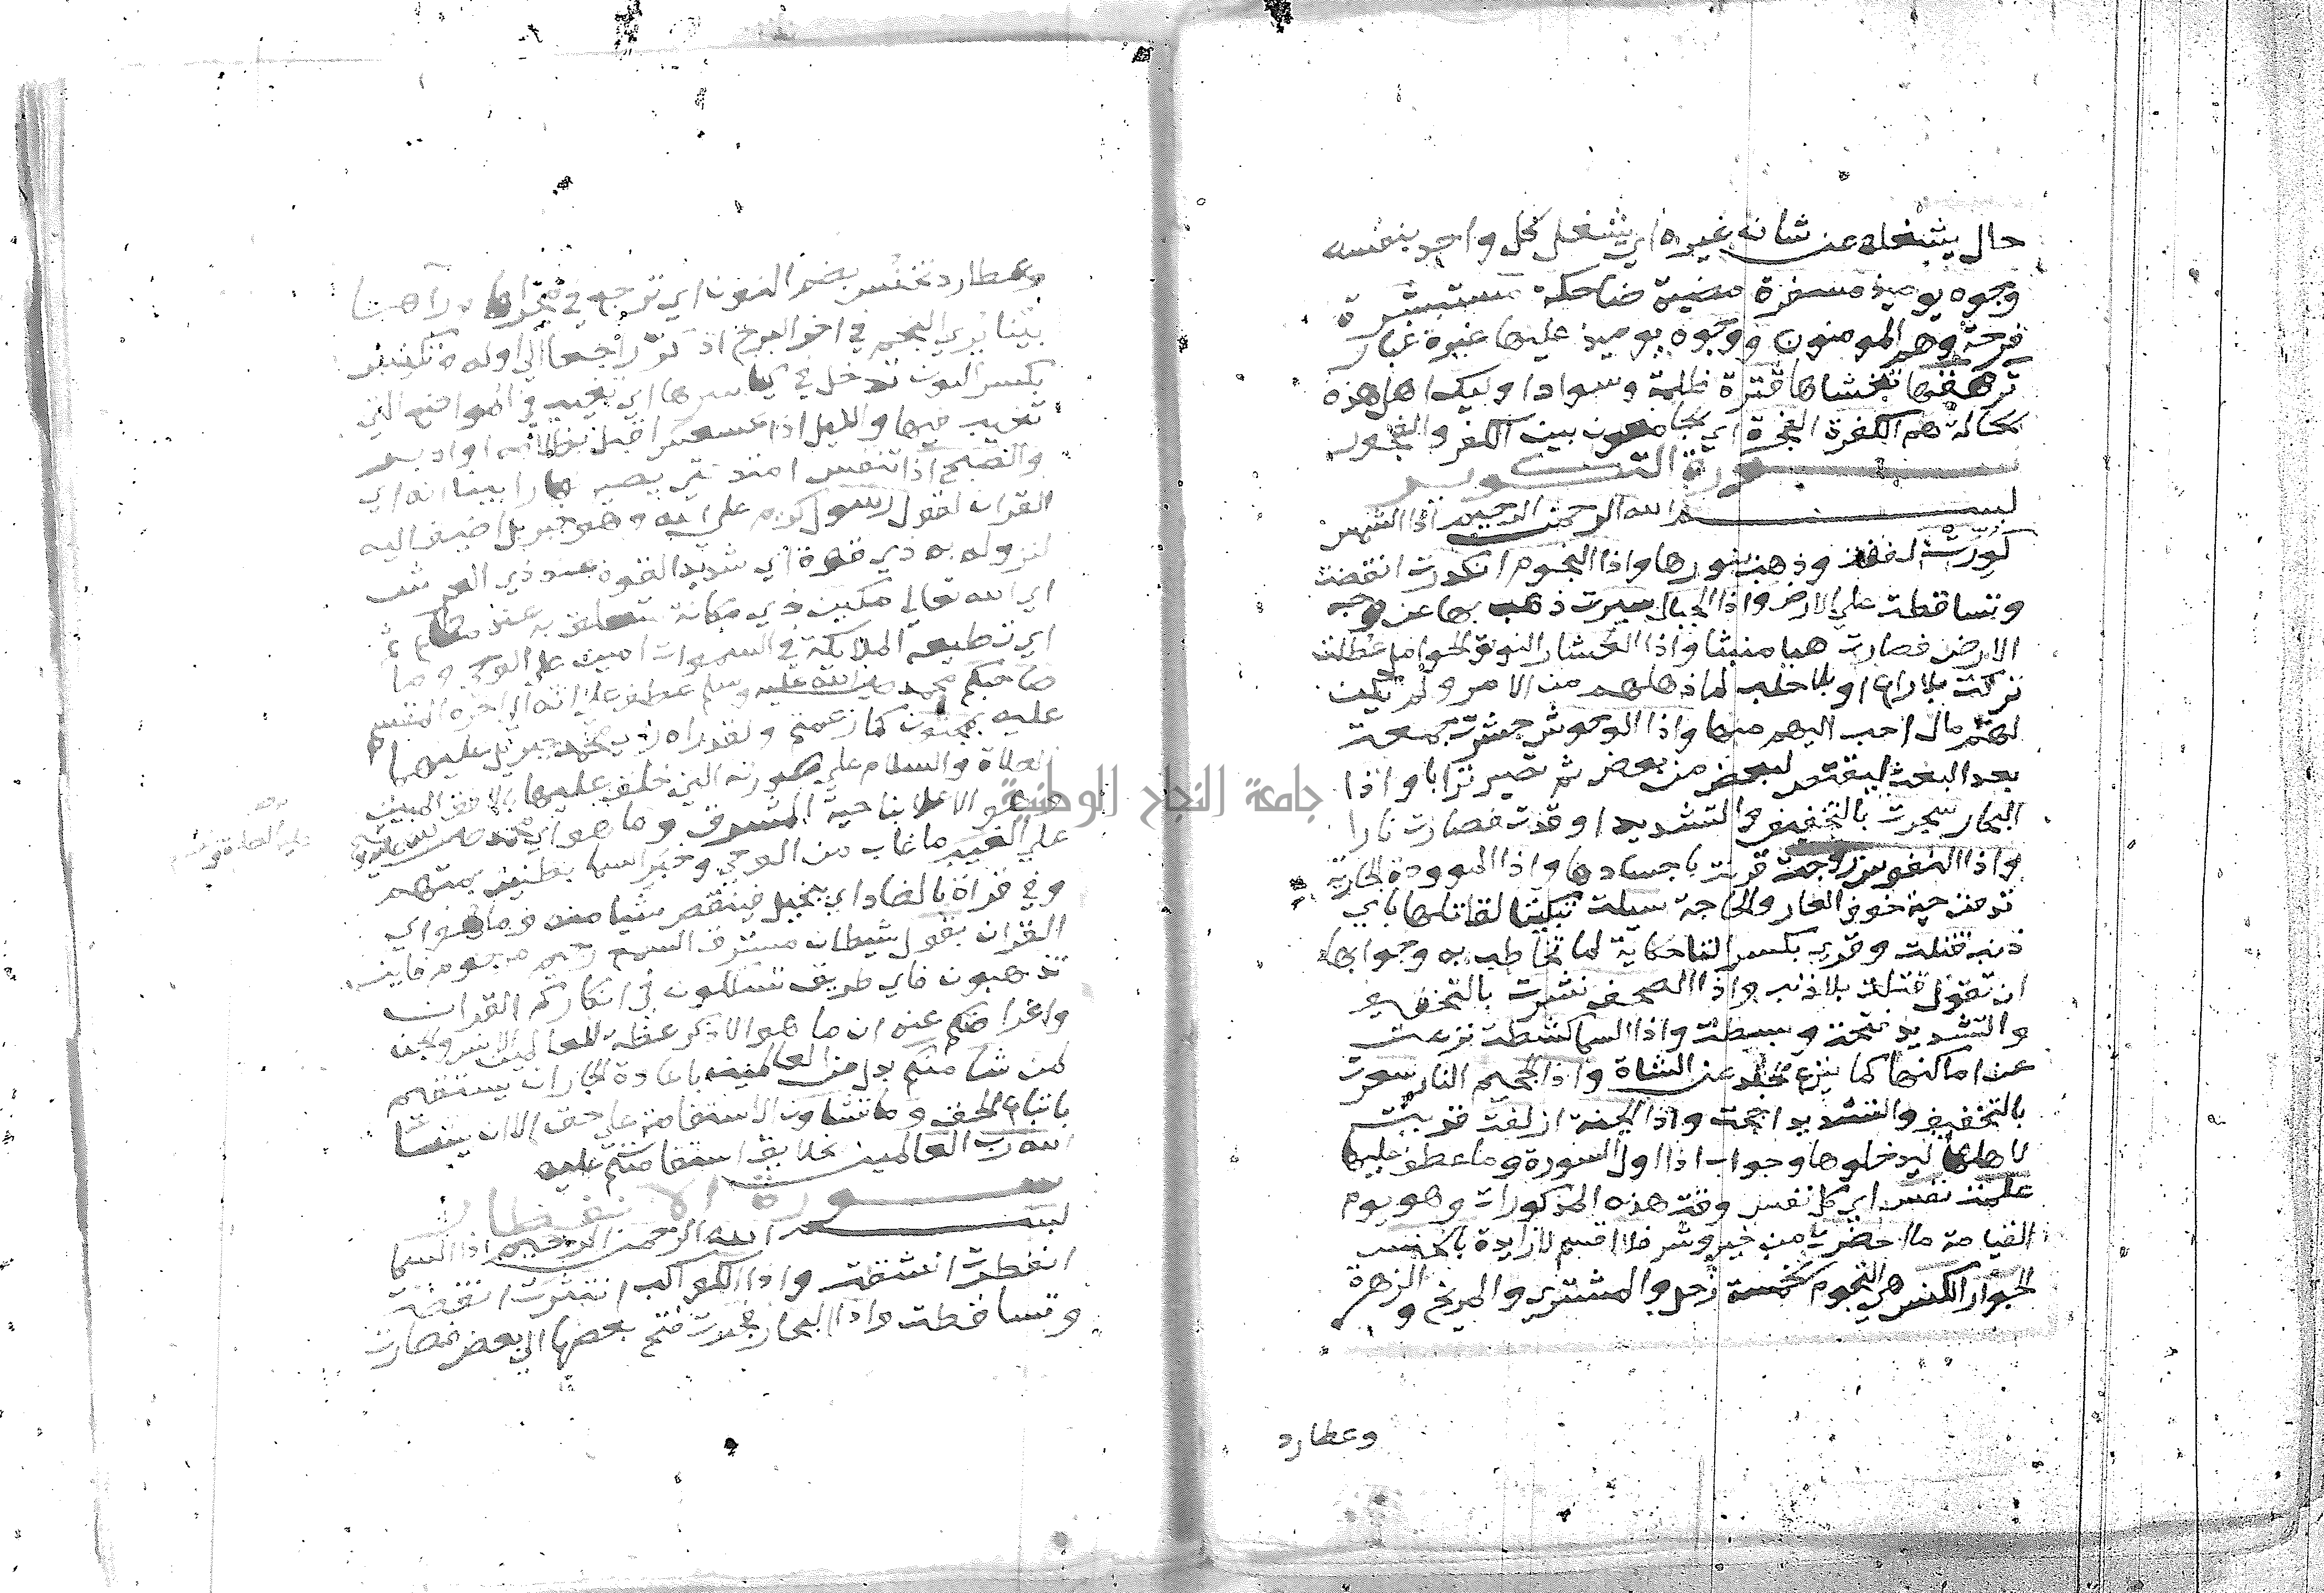 حال يشغله عن شانه غيره اي يشغل كل واحد بنفسه
وجوه يوميذ مسفرة مضية ضاحكة مستبشرة
فرحة وهم المومنون ووجوه يوميذ عليها غبرة غبار
ترهقها تغشاها قترة ظلمة وسوادا وليك اهل هذه
الحالة هم الكفرة الفجرة اي الجامعون بين الكفر والفجور
سورة التكوير
بسم الله الرحمن الرحيم اذا الشمس
كورت لففت وذهب نورها واذا النجوم انكدرت انقضت
وتساقطت علي الارض واذا الجبال سيرت ذهب بها عن وجه
الارض فصارت هبا منبثا واذا العشار النوق الحوامل عطلت
تركت بلا راع او بلا حلب لما دهاهم من الامر ولم يكن
لهم مال احب اليهم منها واذا الوحوش حشرت جمعت
بعد البعث ليقتص لبعض من بعض ثم تصير ترابا واذا
البحار سجرت بالتخفيف والتشديد اوقدت فصارت نارا
واذا النفوس زوجت قرنت باجسادها واذا الموودة الجارية
تدفن حية خوف العار والحاجة سيلت تبكيتا لقاتلها باي
ذنب قتلت وقري بكسر التا حكاية لما تخاطب به وجوابها
ان تقول قتلت بلا ذنب واذا الصحف نشرت بالتخفيف
والتشديد فتحت وبسطت واذا السما كشطت نزعت
عن اماكنها كما ينزع الجلد عن الشاة واذا الجحيم النار سعرت
بالتخفيف والتشديد اججت واذا الجنة ازلفت قربت
لاهلها ليدخلوها وجواب اذا اول السورة وما عطف عليها
علمت نفس اي كل نفس وقت هذه المذكورات وهو يوم
القيامة ما احضرت من خير وشر فلا اقسم لا زايدة بالخنس
الجوار الكنس هي النجوم الخمسة زحل والمشتري والمريخ والزهرة
وعطارد
وعطارد تخنس بضم النون اي ترجع في مجراها وراها
بينا يري النجم في اخر البرج اذ كر راجعا الي اوله وتكنس
بكسر النون تدخل في كناسها اي تغيب في المواضع التي
تغيب فيها والليل اذا عسعس اقبل بظلامه او ادبر
والصبح اذا تنفس امتد حتي يصير نهارا بينا انه اي
القران لقول رسول كريم علي الله وهو جبريل اضيف اليه
لنزوله به ذي قوة اي شديد القوة عند ذي العرش
اي الله تعالي مكين ذي مكانة متعلق به عند مطاع ثم
اي تطيعه الملايكة في السموات امين علي الوحي وما
صاحبكم محمد صلي الله عليه وسلم عطف علي انه الي اخره المقسم
عليه بمجنون كما زعمتم ولقد راه راي محمد جبريل عليهما
الصلاة والسلام علي صورته التي خلق عليها بالافق المبين
وهو الاعلا بناحية المشرق وما هو اي محمد
علي الغيب ما غاب من الوحي وخبر السما بظنين بمتهم
وفي قراة بالضاد اي ببخيل فينقص شيا منه وما هو اي
القران بقول شيطان مسترق السمع رجيم مرجوم فاين
تذهبون فاي طريق تسلكون في انكاركم القران
واعراضكم عنه ان ما هو الا ذكر عظة للعالمين الانس والجن
لمن شا منكم بدل من العالمين باعادة الجار ان يستقيم
باتباع الحق وما تشاون الاستقامة علي حق الا ان يشا
الله رب العالمين خلايق استقامتكم عليه
سورة الانفطار
بسم الله الرحمن الرحيم اذا السما
انفطرت انشقت واذا الكواكب انتثرت انقضت
وتساقطت واذا البحار فجرت فتح بعضها الي بعض فصارت
جامعة النجاح الوطنية